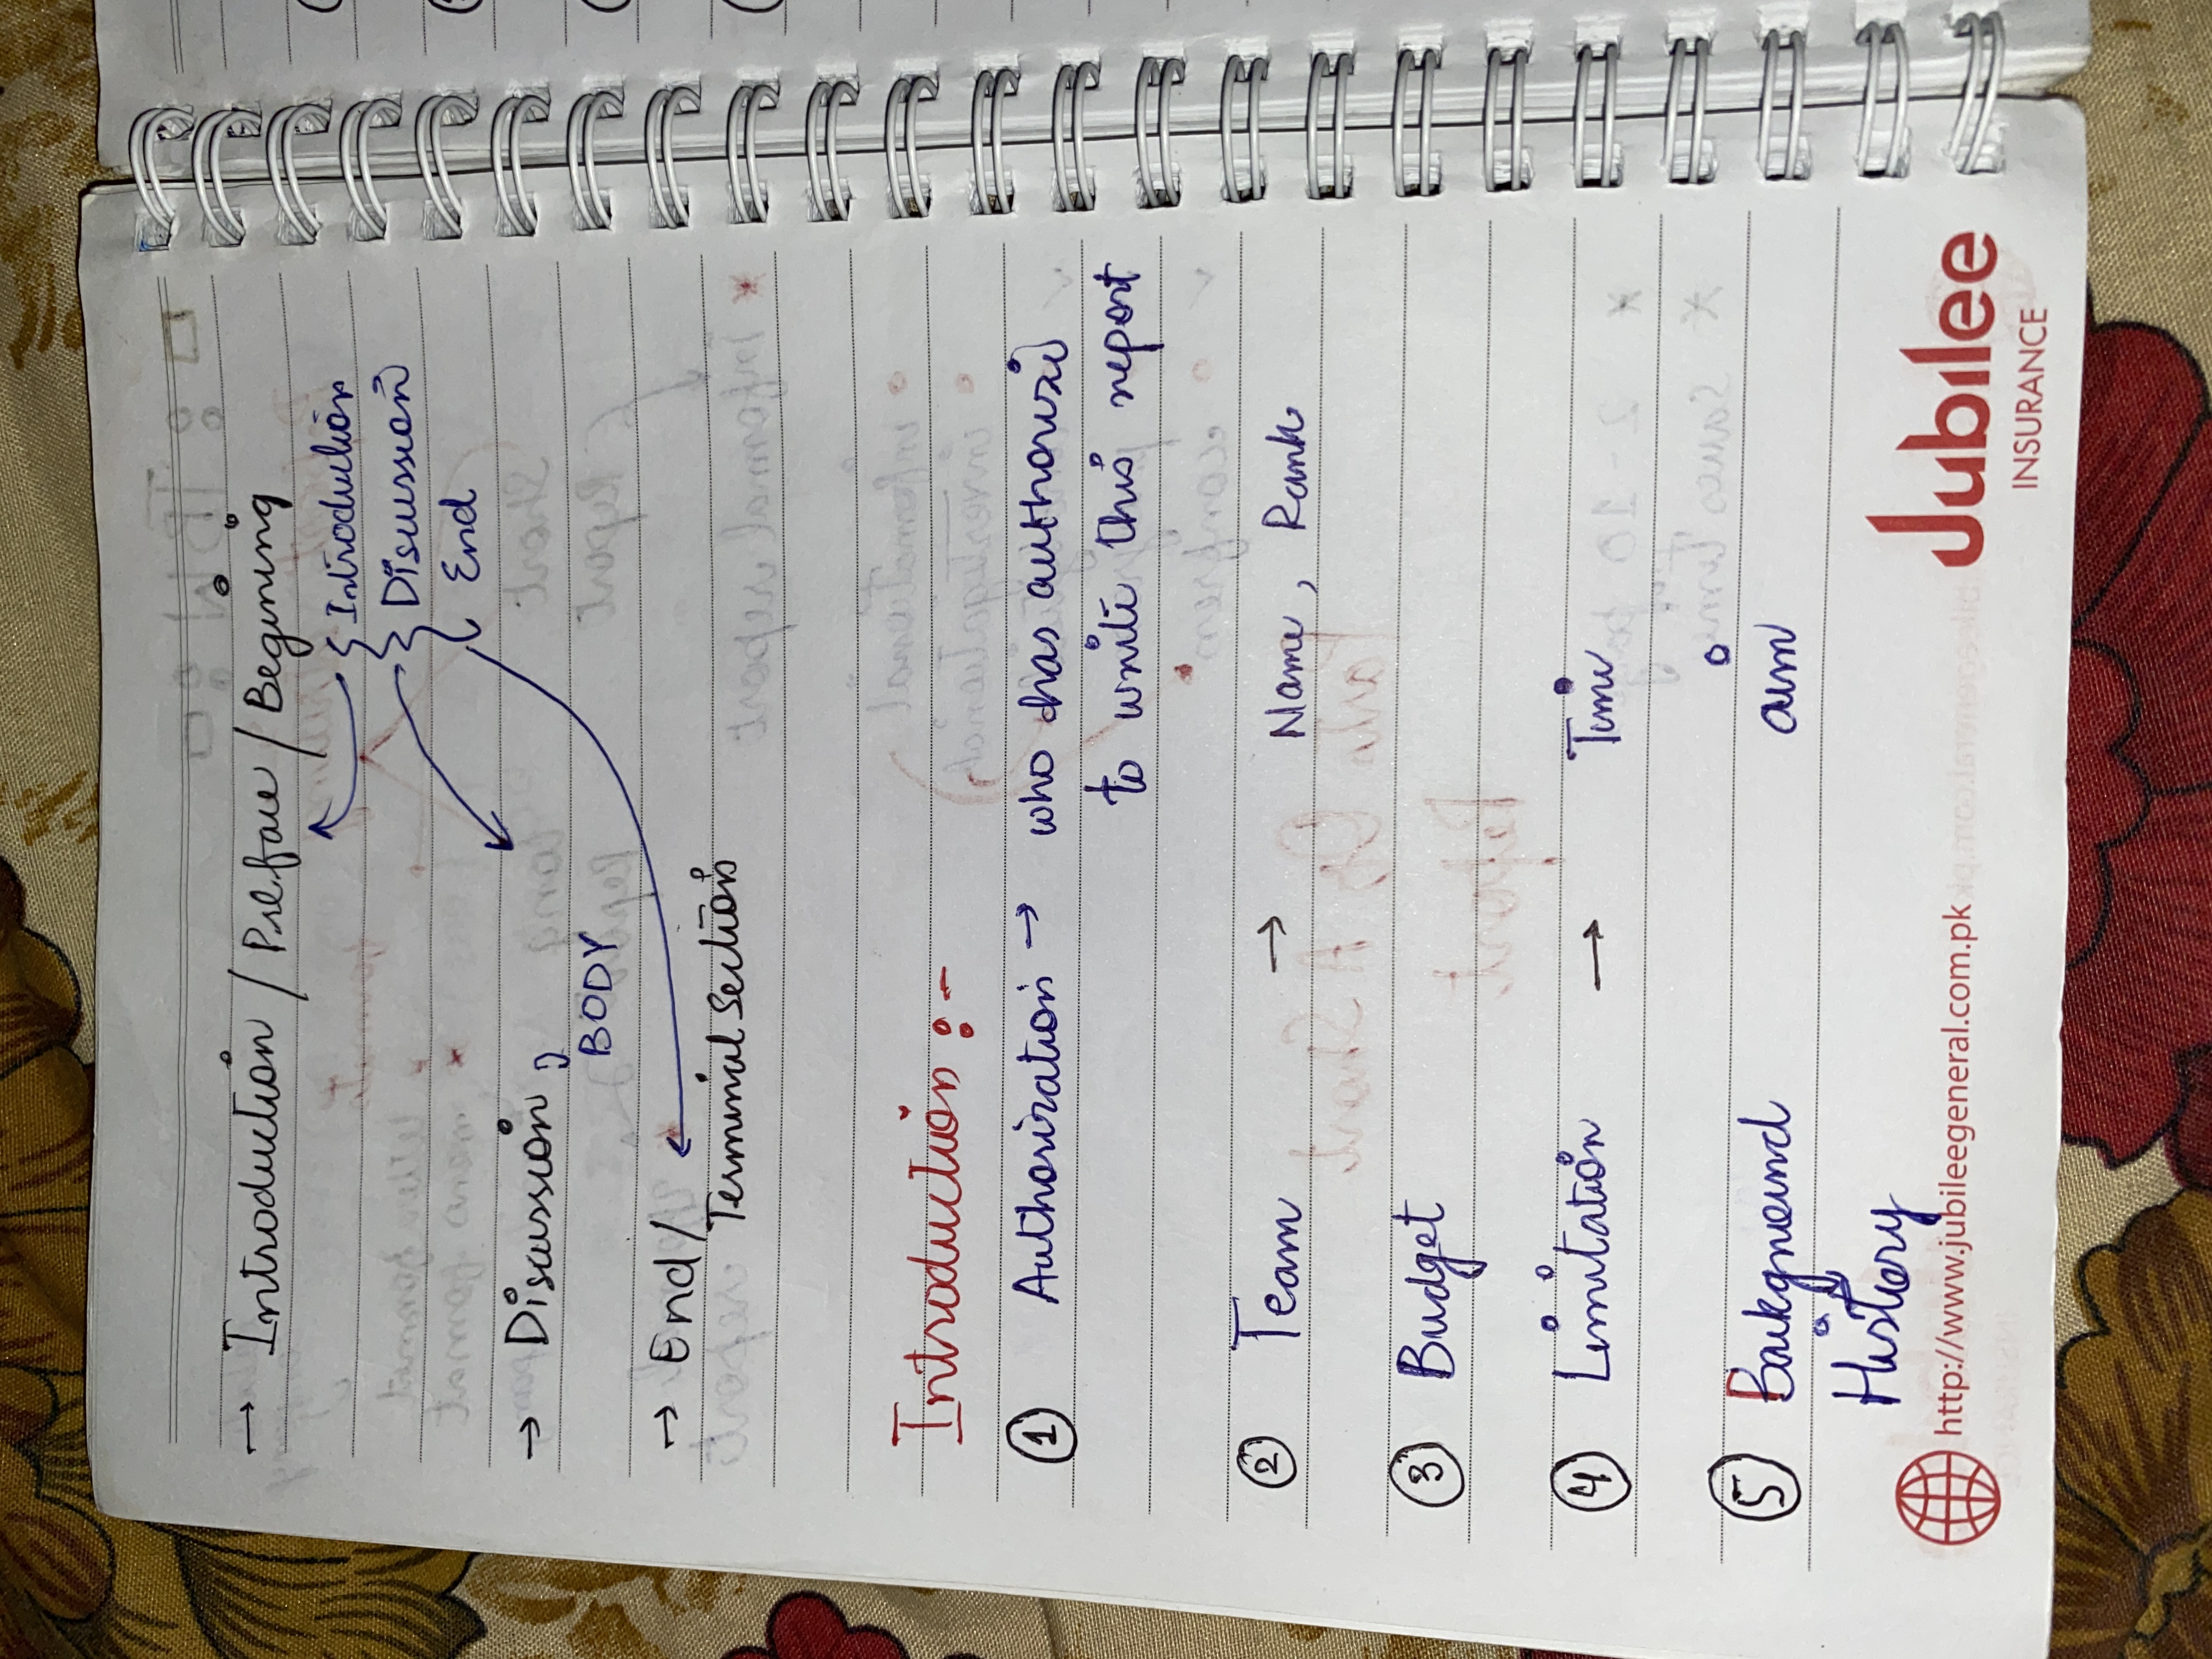 → Introduction / Preface / Begining
Introduction
Discussion
End
→ Discussion,
BODY
→ End/
Terminal Section
Introduction :-
① Authorization → who has authorize
to write this report
② Team → Name, Rank
③ Budget
④ Limitation → Time
⑤ Background aim
History
http://www.jubileegeneral.com.pk
Jubilee
INSURANCE